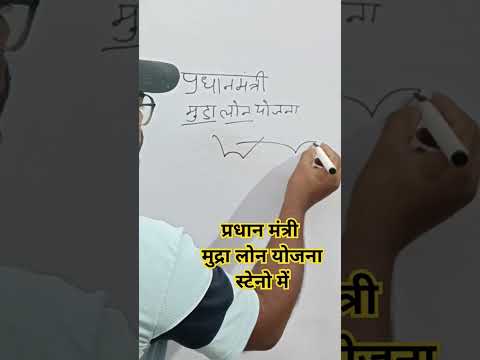 प्रधानमंत्री
मुद्रा लोन योजना
प्रधान मंत्री
मुद्रा लोन योजना
स्टेनो में